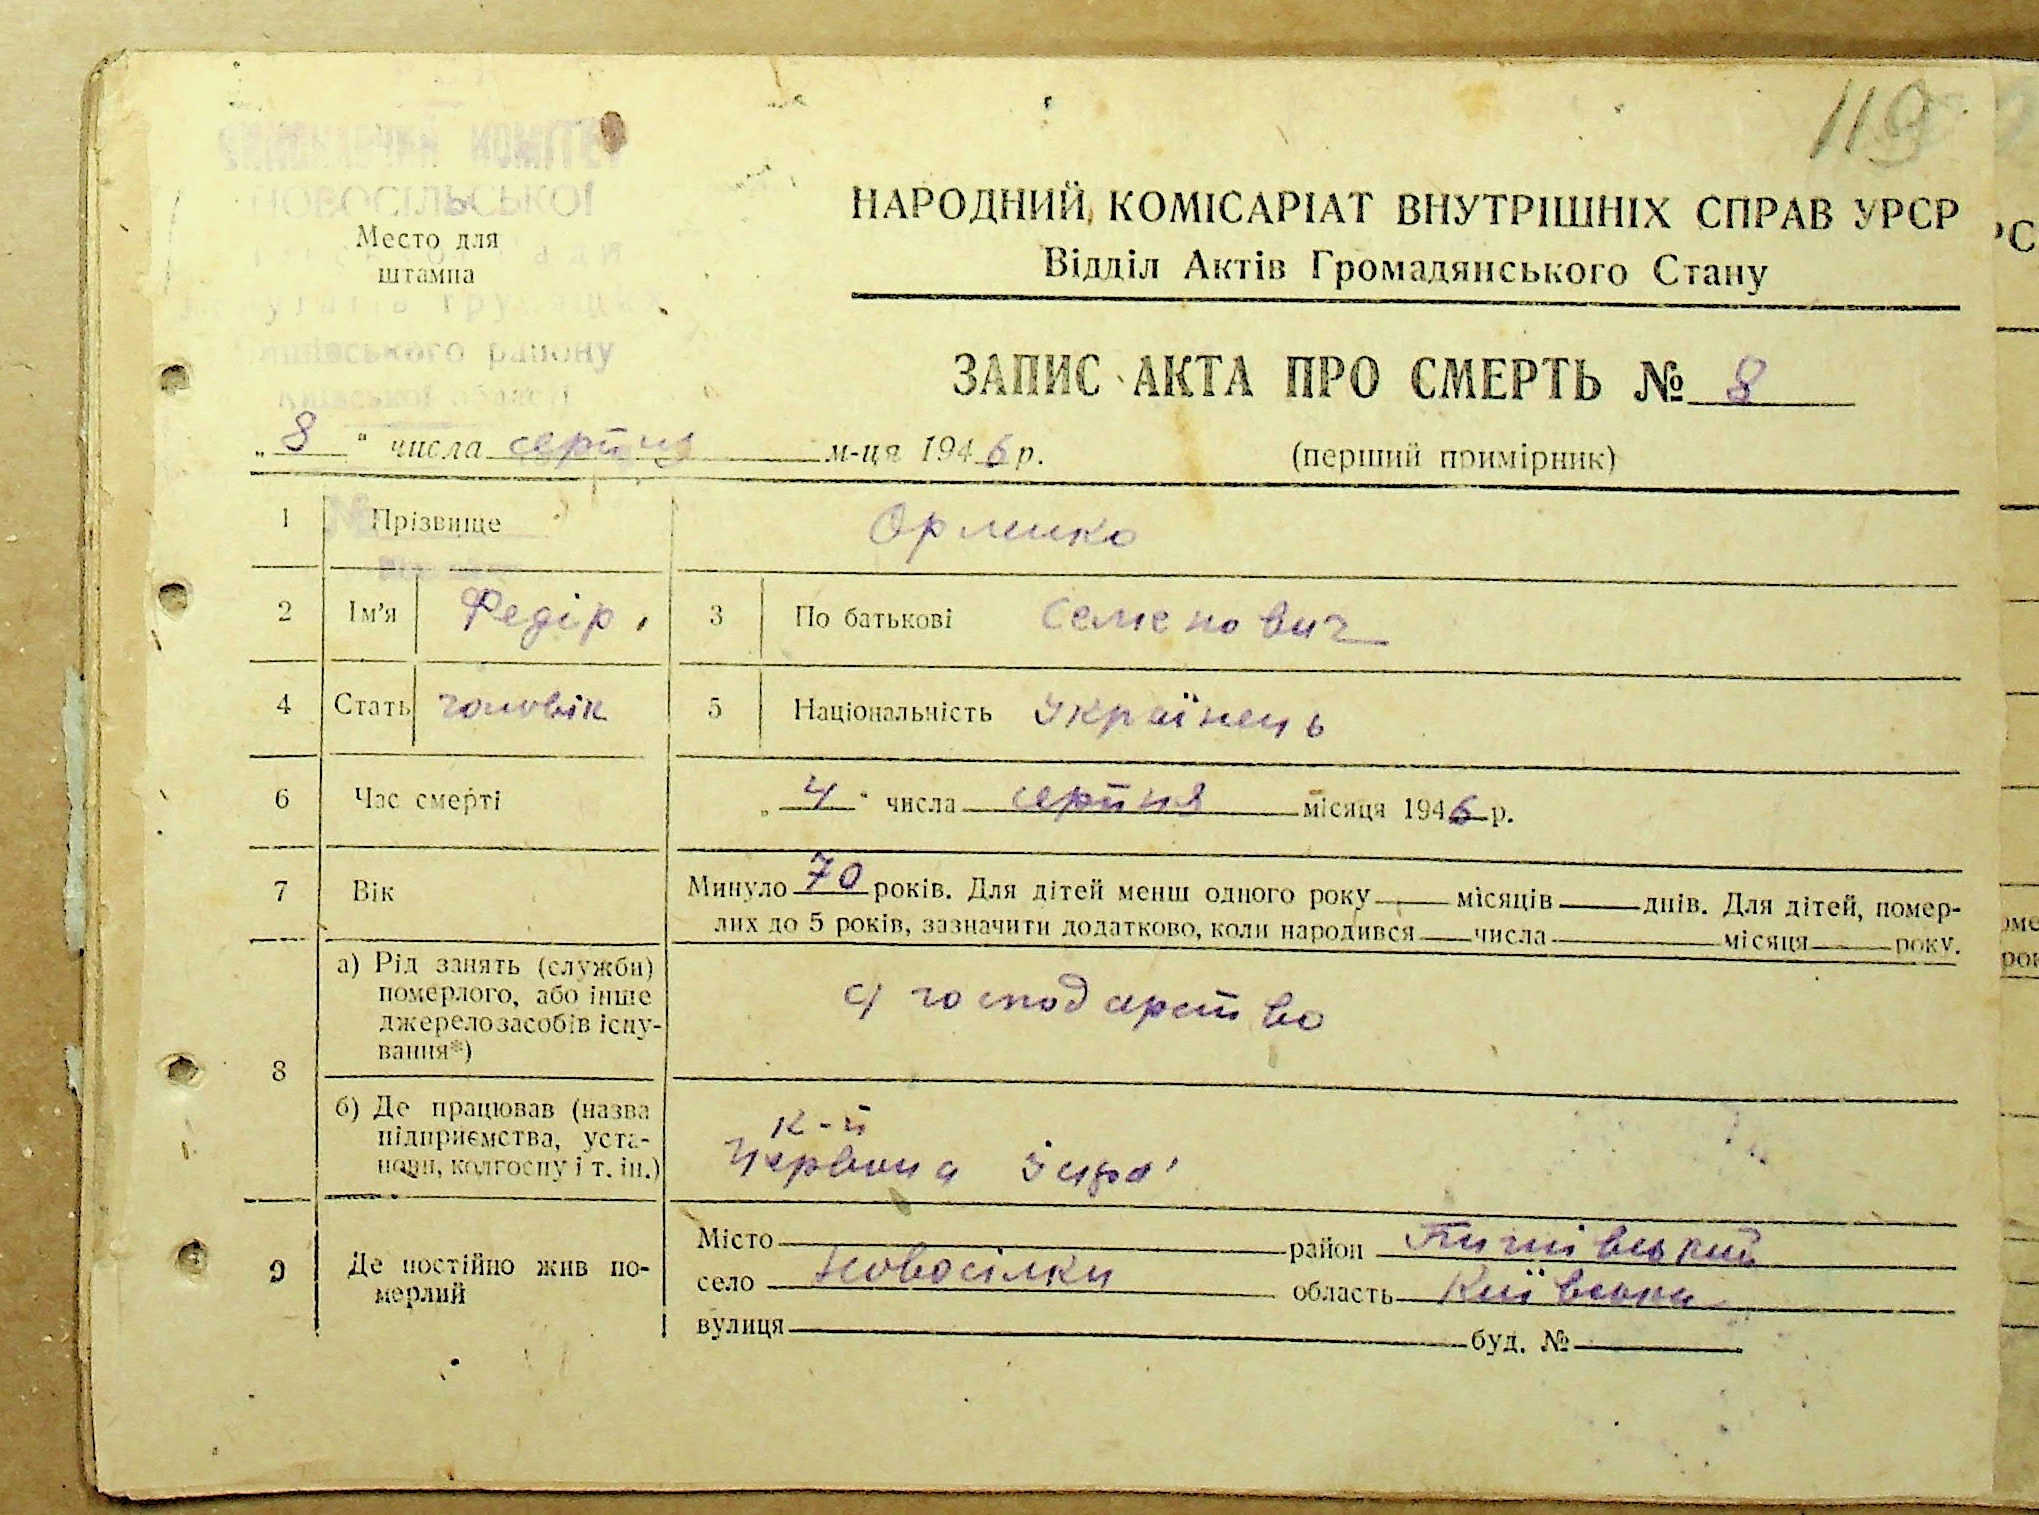 119
ВИКОНАВЧИЙ КОМІТЕТ
НОВОСІЛЬСЬКОЇ
Место для
штампа
району
Київської області
НАРОДНИЙ КОМІСАРІАТ ВНУТРІШНІХ СПРАВ УРСР
Відділ Актів Громадянського Стану
ЗАПИС АКТА ПРО СМЕРТЬ № 8
„ 8 “ числа серпня м-ця 1946 р. (перший примірник)
1 Прізвище Орленко
2 Ім'я Федір 3 По батькові Семенович
4 Стать чоловік 5 Національність Українець
6 Час смерті „ 4 “ числа серпня місяця 1946 р.
7 Вік Минуло 70 років. Для дітей менш одного року місяців днів. Для дітей, помер-
лих до 5 років, зазначити додатково, коли народився числа місяця року.
8 а) Рід занять (служби)
померлого, або інше
джерело засобів існу-
вання*)
с/господарство
б) Де працював (назва
підприємства, уста-
нови, колгоспу і т. ін.)
Червона
9 Де постійно жив по-
мерлий
Місто район
село Новосілки область Київська
вулиця буд. №